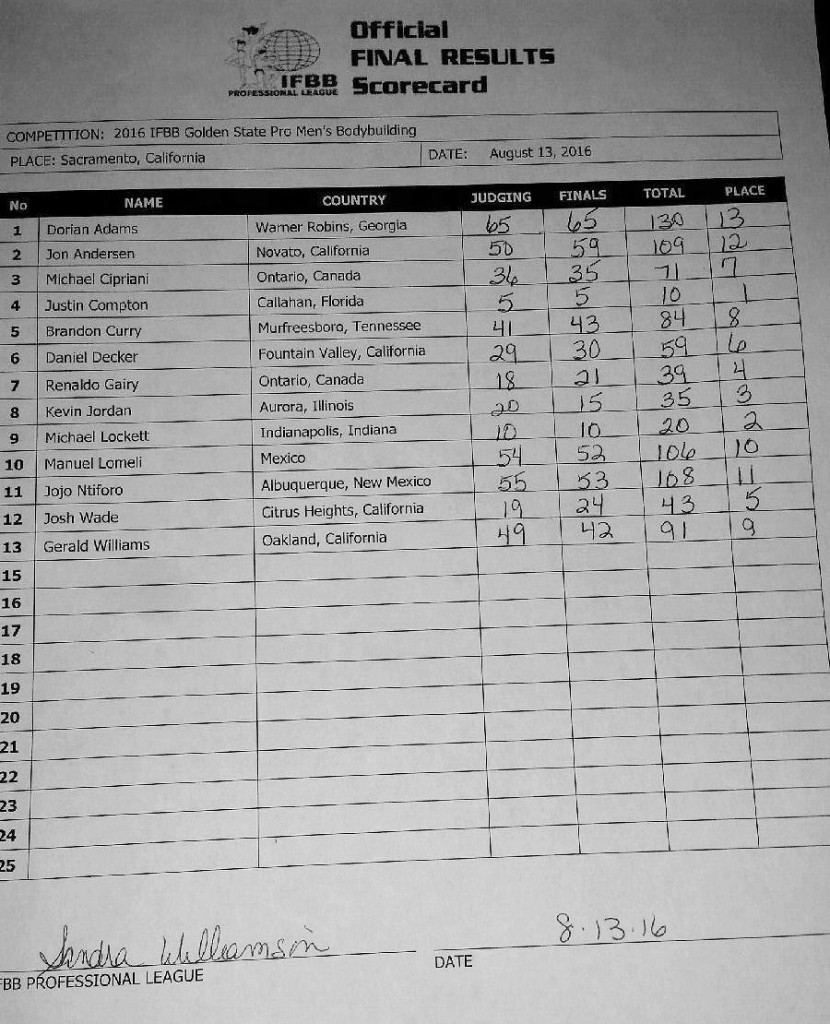 Official
FINAL RESULTS
Scorecard
IFBB
PROFESSIONAL LEAGUE
COMPETITION: 2016 IFBB Golden State Pro Men's Bodybuilding
PLACE: Sacramento, California DATE: August 13, 2016
No NAME COUNTRY JUDGING FINALS TOTAL PLACE
1 Dorian Adams Warner Robins, Georgia 65 65 130 13
2 Jon Andersen Novato, California 50 59 109 12
3 Michael Cipriani Ontario, Canada 36 35 71 7
4 Justin Compton Callahan, Florida 5 5 10 1
5 Brandon Curry Murfreesboro, Tennessee 41 43 84 8
6 Daniel Decker Fountain Valley, California 29 30 59 6
7 Renaldo Gairy Ontario, Canada 18 21 39 4
8 Kevin Jordan Aurora, Illinois 20 15 35 3
9 Michael Lockett Indianapolis, Indiana 10 10 20 2
10 Manuel Lomeli Mexico 54 52 106 10
11 Jojo Ntiforo Albuquerque, New Mexico 55 53 108 11
12 Josh Wade Citrus Heights, California 19 24 43 5
13 Gerald Williams Oakland, California 49 42 91 9
15
16
17
18
19
20
21
22
23
24
25
Sandra Williamson 8.13.16
FBB PROFESSIONAL LEAGUE DATE